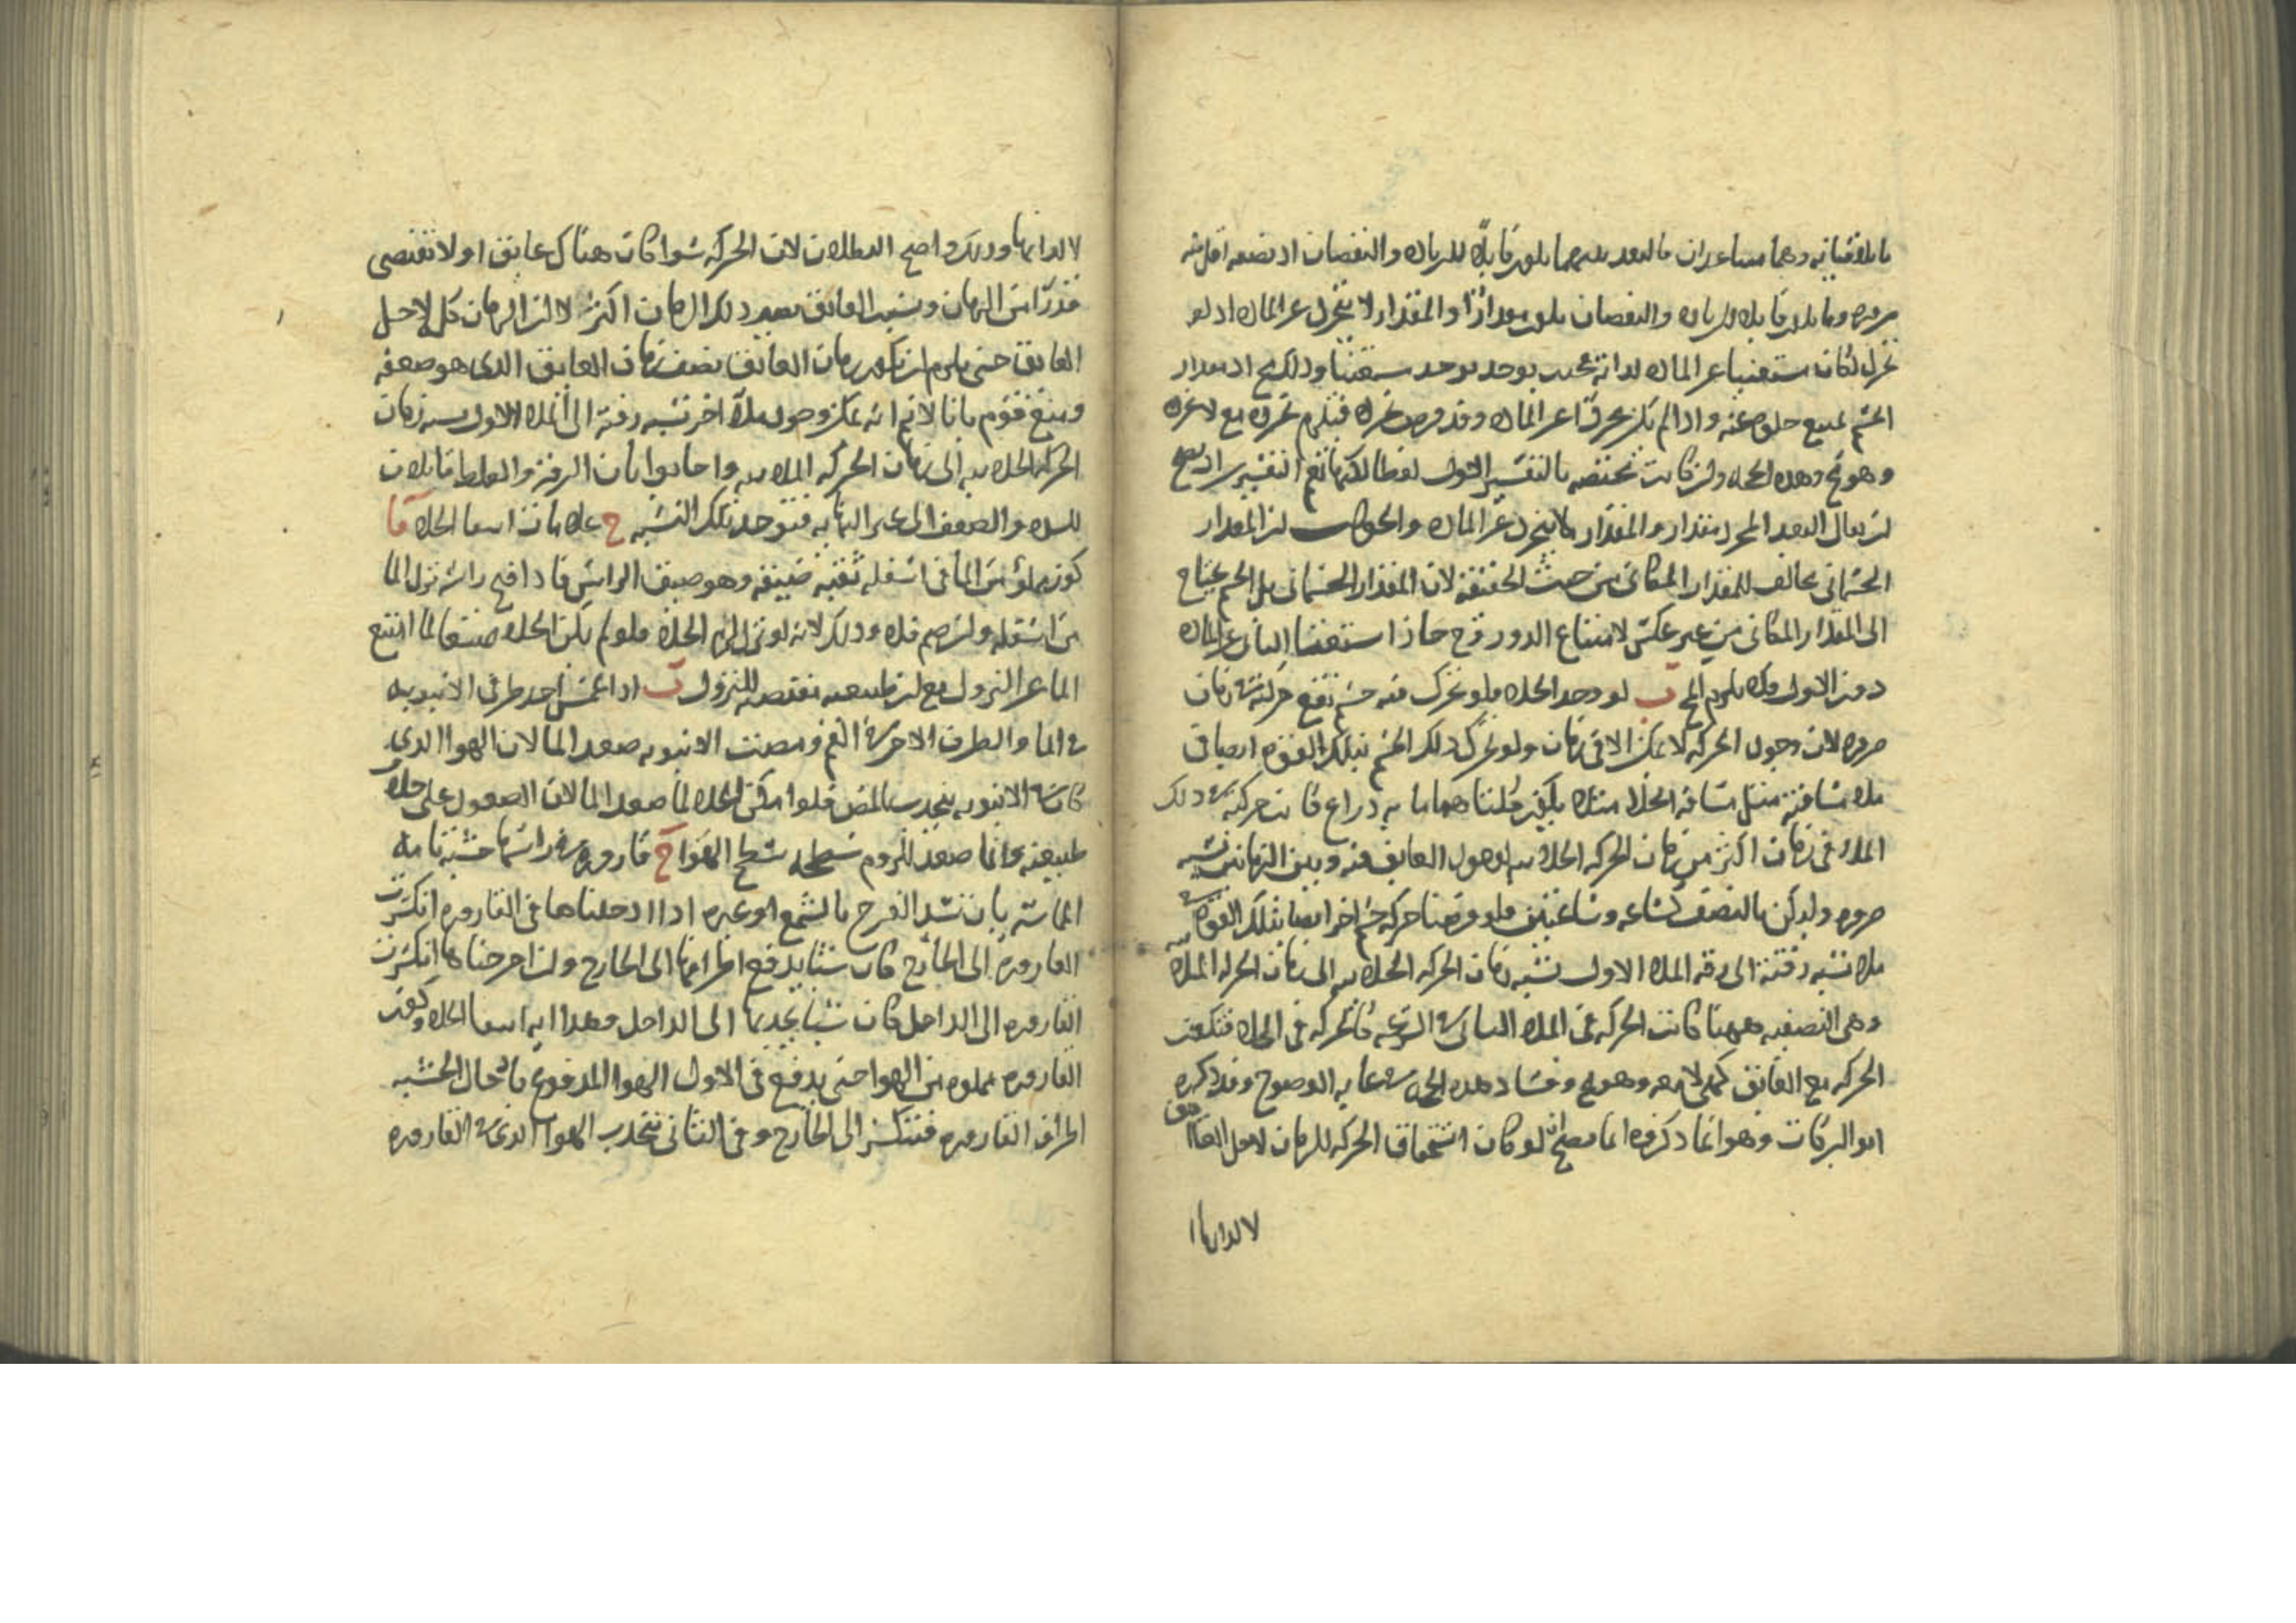 ما يلاقيانه وهما متباعدان فالبعد بينهما يكون قابلا للزيادة والنقصان اذ نصفه اقل منه
ضروره وما يكون قابلا للزياده والنقصان يكون مقدارا والمقدار لا يتجرد عن الماده اذ لو
تجرد لكان مستغنيا عن الماده لذاته بحيث يوجد مستغنيا وذلك مح اذ مقدار
الجسم يمتنع خلوه عنه واذا لم يكن مجردا عن الماده وقد فرض تجرده فيلزم تجرده مع لا تجرده
وهو مح وهذه الحجه وان كانت مختصه بالتفسير الاول لفظا لكنها تعم التفسيرين اذ يصح
ان يقال البعد المجرد مقدار والمقدار لا يتجرد عن الماده والجواب ان المقدار
الجسمانى مخالف للمقدار المكانى من حيث الحقيقه لان المقدار الجسمانى بل الجسم يحتاج
الى المقدار المكانى من غير عكس لامتناع الدور وح جاز استغنا الثانى عن الماده
دون الاول ولا يلزم المح ب لو وجد الخلاء فلو تحرك فيه جسم تقع حركته فى زمان
ضروره لان وجود الحركه لا يمكن الا فى زمان ولو تحرك ذلك الجسم بتلك القوه ايضا فى
ملاء مسافته مثل مسافه الخلا مثلا يكون كلتاهما مايه ذراع كانت حركته فى ذلك
الملاء فى زمان اكثر من زمان الحركه الخلائيه لحصول العايق فيه وبين الزمانين نسبه
ضروره وليكن بالنصف كساعه وساعتين فلو فرضنا حركه جسم اخر ايضا بتلك القوه فى
ملاء نسبه رقته الى رقه الملاء الاول نسبه زمان الحركه الخلائيه الى زمان الحركه الملائيه
وهى النصفيه ههنا كانت الحركه فى الملاء الثانى فى السرعه كالحركه فى الخلاء فتكون
الحركه مع العايق كهى لا معه وهو مح وفساد هذه الحجه فى غايه الوضوح وقد ذكره
ابو البركات وهو ان ما ذكروه انما يصح ان لو كان استحقاق الحركه للزمان لاجل العايق
لا لذاتها
لا لذاتها وذلك واضح البطلان لان الحركه سوا كان هناك عايق او لا تقتضى
قدرا من الزمان وبسبب العايق يصير ذلك الزمان اكثر لا ان الزمان كله لاجل
العايق حتى يلزم ان يكون زمان العايق نصف زمان العايق الذى هو ضعفه
ومنع قوم بانا لا نم انه يمكن وجود ملاء اخر نسبه رقته الى الملاء الاول نسبه زمان
الحركه الخلائيه الى زمان الحركه الملائيه واجابوا بان الرقه والغلظ قابلان
للشده والضعف الى غير النهايه فتوجد تلك النسبه ح علامات انتفا الخلاء آ
كوز مملو من الما فى اسفله ثقبه ضيقه وهو ضيق الراس فاذا فتح راسه نزل الما
من اسفله وان ضم فلا وذلك لانه لو نزل لزم الخلاء فلو لم يكن الخلاء ممتنعا لما امتنع
الما عن النزول مع ان طبيعته تقتضى النزول ب اذا غمس احد طرفى الانبوبه
فى الما والطرف الاخر فى الفم ومصت الانبوبه صعد الما لان الهوا الذى
كان فى الانبوبه ينجذب بالمص فلو امكن الخلاء لما صعد الما لان الصعود على خلاف
طبيعته وانما صعد للزوم سطحه سطح الهوا ج قاروره فى راسها خشبه تامه
المماسه بان تسد الفرج بالشمع او غيره اذا ادخلناها فى القاروره انكسرت
القاروره الى الخارج كان شيئا يدفع اطرافها الى الخارج وان اخرجناها انكسرت
القاروره الى الداخل كان شيئا يجذبها الى الداخل وهذا ايه انتفا الخلاء وكون
القاروره مملوه من الهوا حتى يدفع فى الاول الهوا المدفوع بادخال الخشبه
اطراف القاروره فتنكسر الى الخارج وفى الثانى ينجذب الهوا الذى فى القاروره